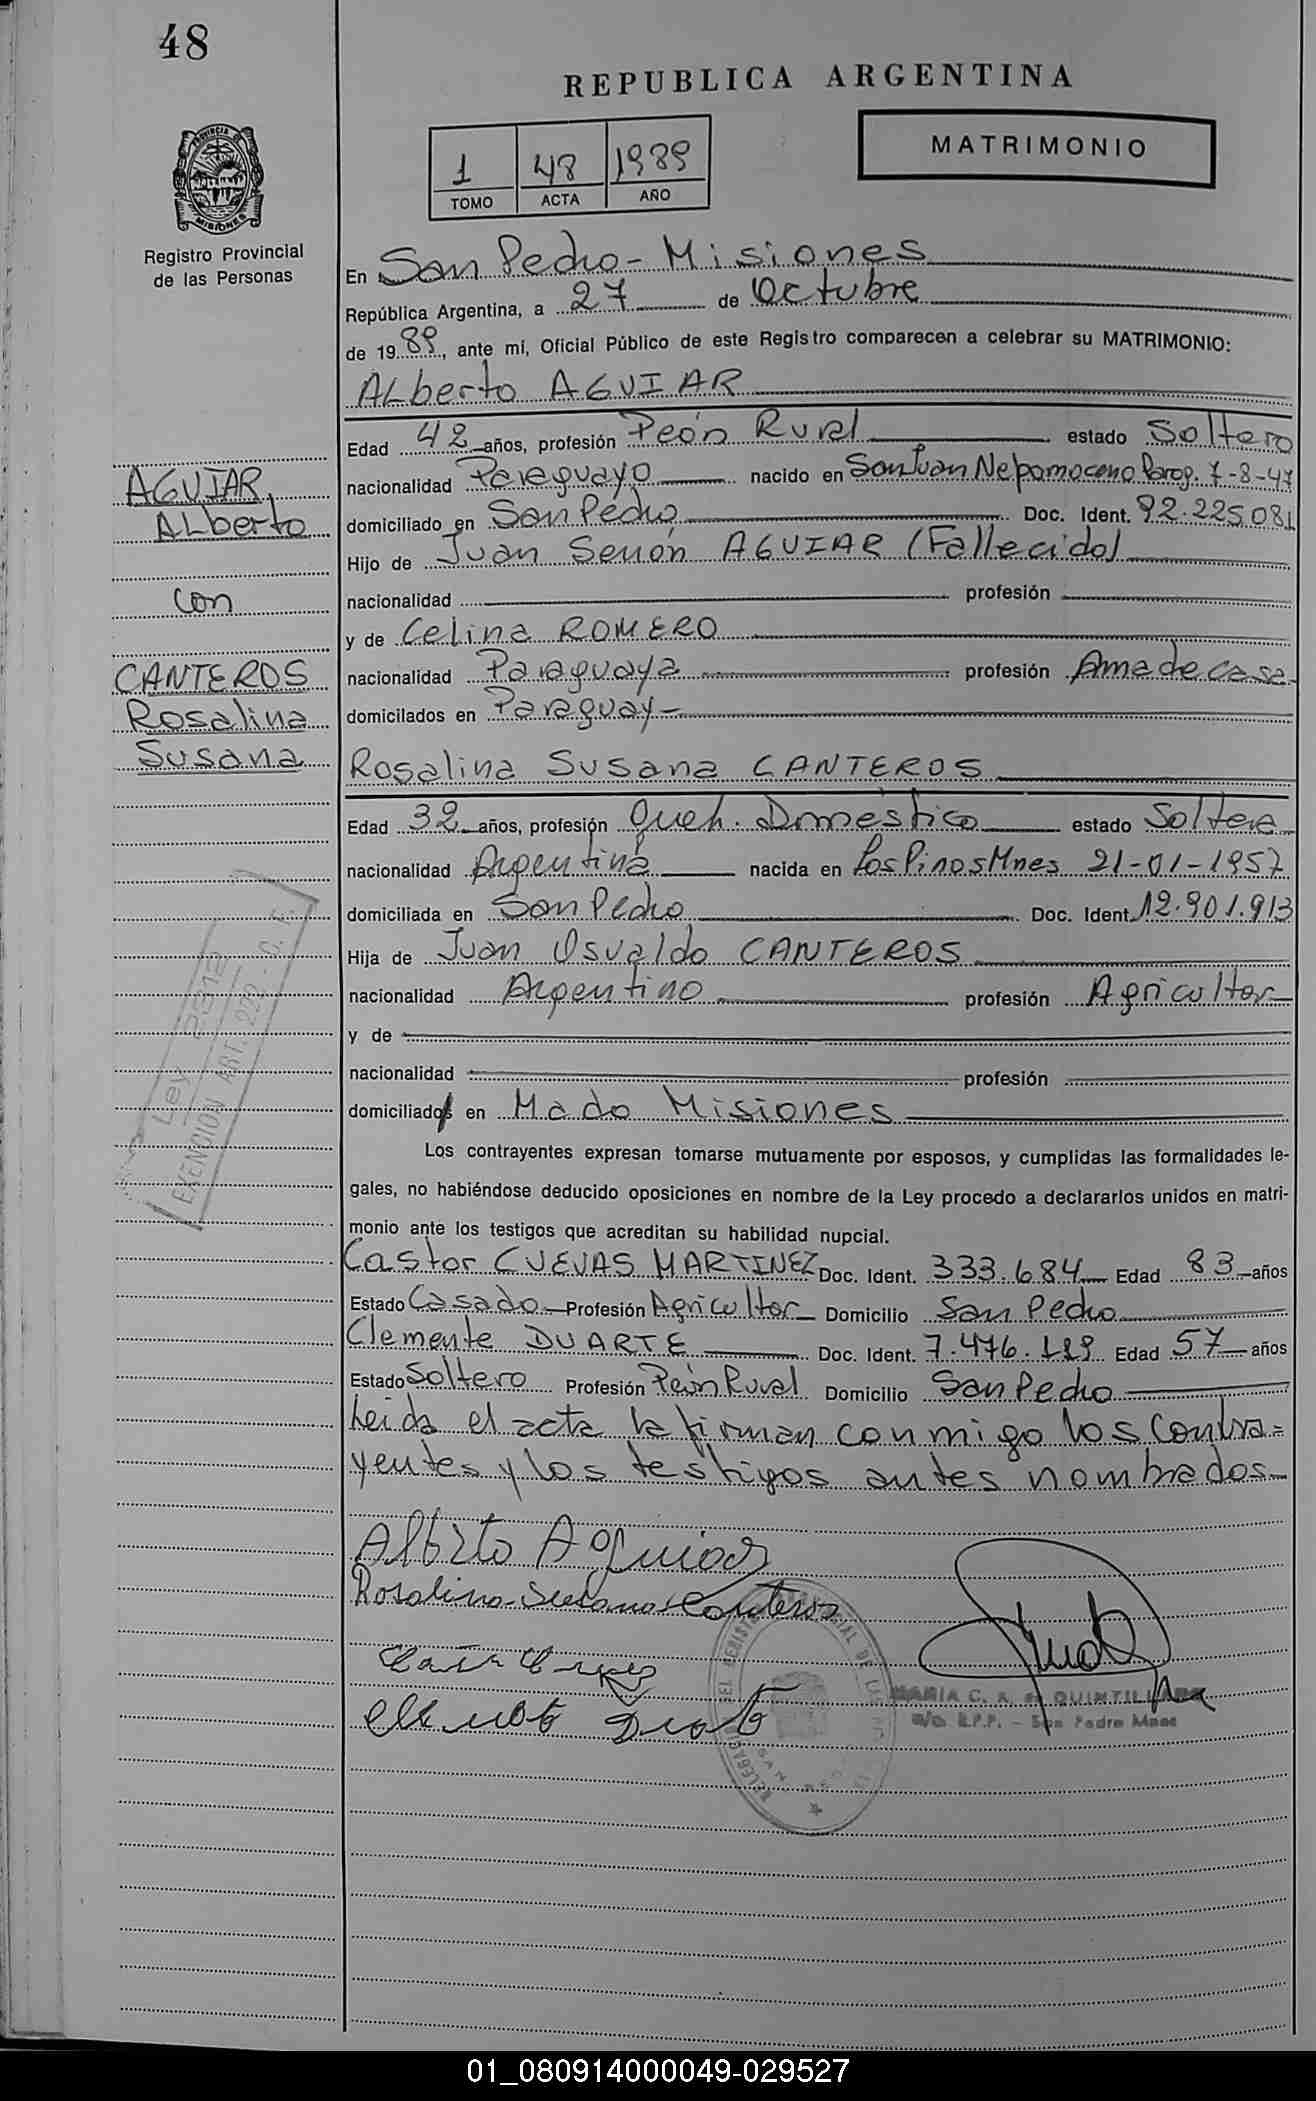 48
REPUBLICA ARGENTINA
MATRIMONIO
1 48 1989
TOMO ACTA AÑO
PROVINCIA DE MISIONES
Registro Provincial
de las Personas
En San Pedro - Misiones
República Argentina, a 27 de Octubre
de 19 89, ante mí, Oficial Público de este Registro comparecen a celebrar su MATRIMONIO:
ALberto AGUIAR
Edad 42 años, profesión Peón Rural estado Soltero
nacionalidad Paraguayo nacido en San Juan Nepomoceno Parag. 7-8-47
domiciliado en San Pedro Doc. Ident. 92.225.081
Hijo de Juan AGUIAR (Fallecido)
nacionalidad profesión
y de Celina ROMERO
nacionalidad Paraguaya profesión Ama de casa
domicilados en Paraguay -
AGUIAR,
ALberto
con
CANTEROS
Rosalina
Susana
Rosalina Susana CANTEROS
Edad 32 años, profesión Queh. Doméstico estado Soltera
nacionalidad Argentina nacida en Los Pinos Mnes 21-01-1957
domiciliada en San Pedro Doc. Ident. 12.901.913
Hija de Juan Osvaldo CANTEROS
nacionalidad Argentino profesión Agricultor
y de
nacionalidad profesión
domiciliados en Mado Misiones
Ley 2312
EXENCION ART. 299 - C. F.
Los contrayentes expresan tomarse mutuamente por esposos, y cumplidas las formalidades le-
gales, no habiéndose deducido oposiciones en nombre de la Ley procedo a declararlos unidos en matri-
monio ante los testigos que acreditan su habilidad nupcial.
Castor CUEVAS MARTINEZ Doc. Ident. 333.684 Edad 83 años
Estado Casado Profesión Agricultor Domicilio San Pedro
Clemente DUARTE Doc. Ident. 7.476.189 Edad 57 años
Estado Soltero Profesión Peón Rural Domicilio San Pedro
Leida el acta la firman conmigo los contra=
yentes y los testigos antes nombrados
Alberto Aguiar
Rosalina Susana Canteros
MARIA C. A. de QUINTILLAN
R.P.P. - San Pedro Mnes
01_080914000049-029527